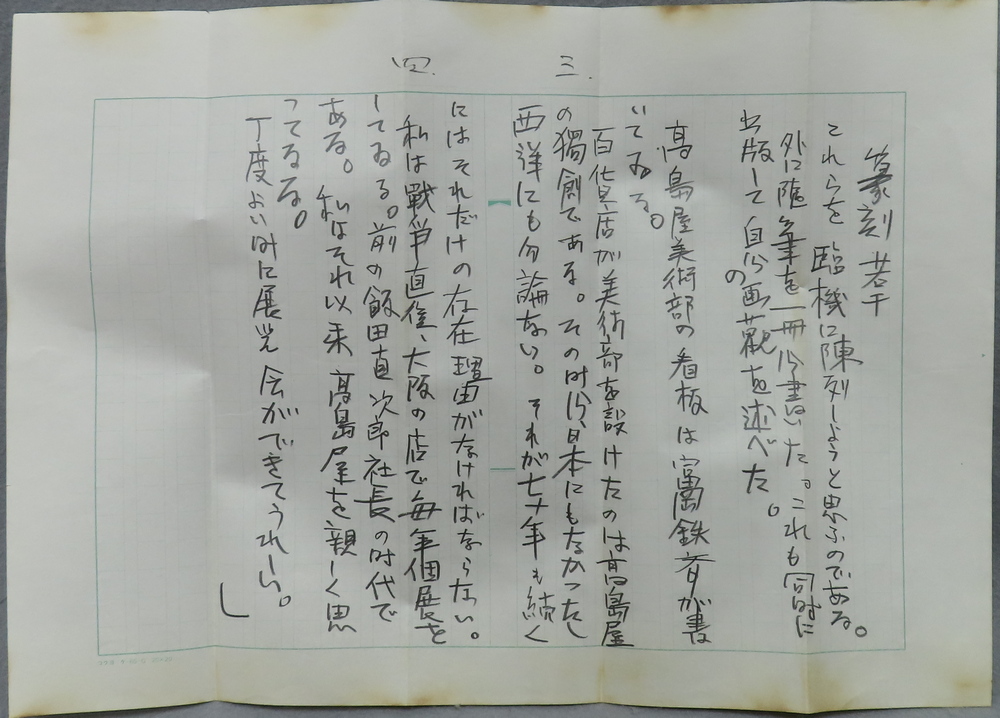 三.
四.
篆刻 若干
これらを臨機に陳列しようと思ふのである。
外に随筆を一冊分書いた。これも同時に
出版して自分の画観を述べた。
高島屋美術部の看板は富岡鉄斎が書
いてゐる。
百貨店が美術部を設けたのは高島屋
の獨創である。その時分、日本にもなかったし
西洋にも勿論ない。それが七十年も続く
にはそれだけの存在理由がなければならない。
私は戦争直後、大阪の店で毎年個展を
してゐる。前の飯田直次郎社長の時代で
ある。私はそれ以来高島屋を親しく思
ってゐる。
丁度よい時に展覧会ができてうれしい。
」